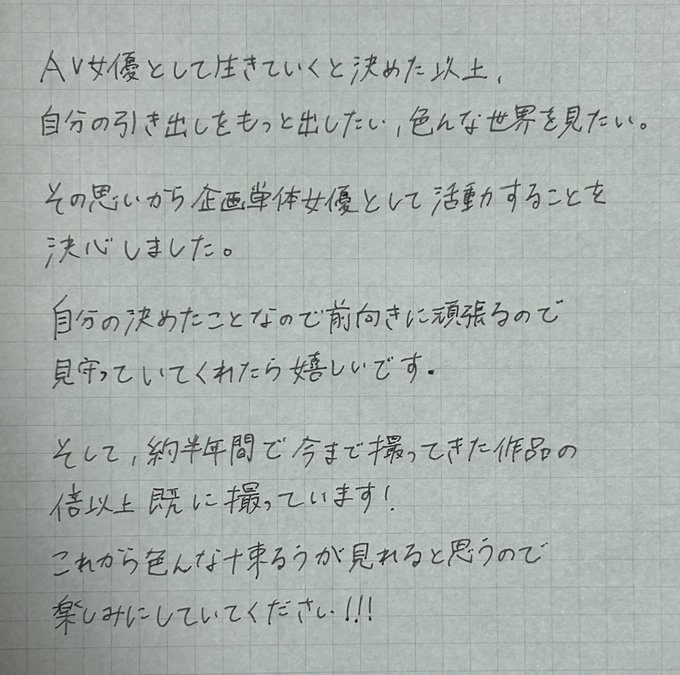 AV女優として生きていくと決めた以上、
自分の引き出しをもっと出したい、色んな世界を見たい。
その思いから企画単体女優として活動することを
決心しました。
自分の決めたことなので前向きに頑張るので
見守っていてくれたら嬉しいです。
そして、約半年間で今まで撮ってきた作品の
倍以上既に撮っています!
これから色んな十束るうが見れると思うので
楽しみにしていてください!!!